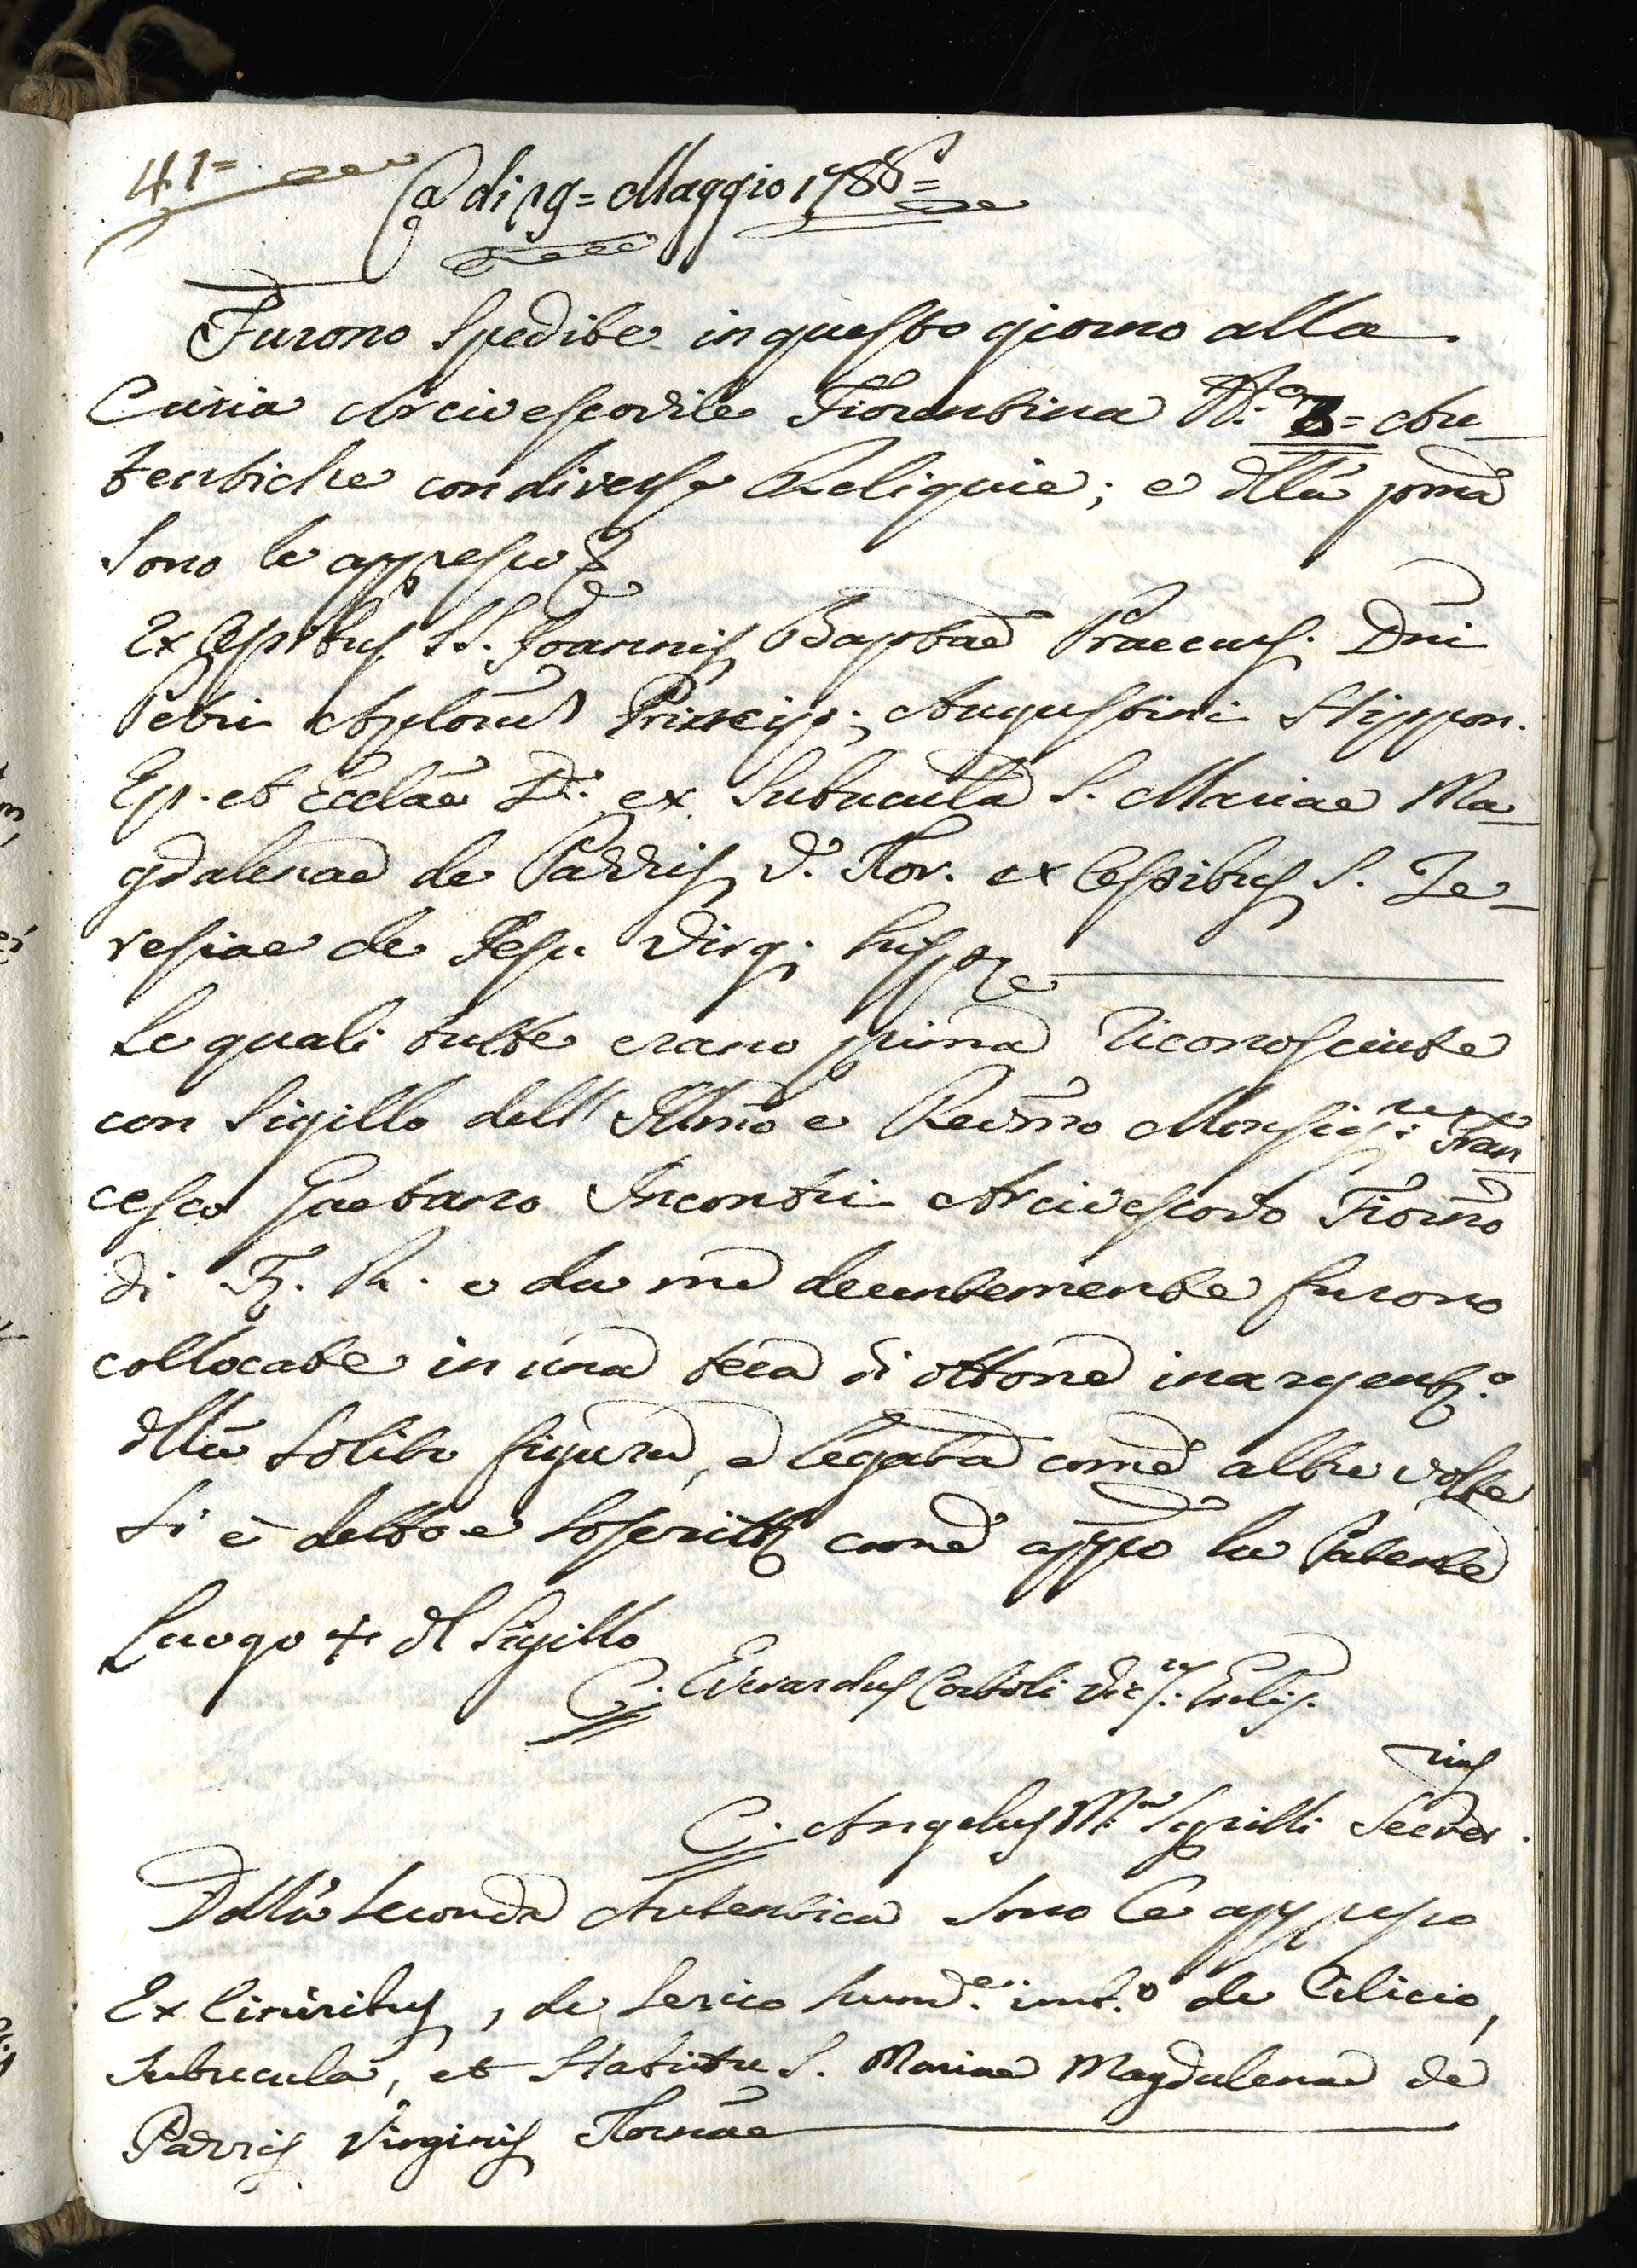 41=
a di 19= Maggio 1786=
Furono Spedite in questo giorno alla
Curia Arcivescovile Fiorentina N.ro 3= Au-
tentiche con diverse Reliquie; e dlla pma
Sono le appresso
Ex Cespitibus SS. Joannis Baptae Praecurs. Dni
Petri Aplorum Princip; Augustini Hippon.
Ep. et Ecclae D. ex Subucula S. Mariae Ma-
gdalenae de Paddis V. Flor. ex Cespitibus S. Te-
resiae de Jesu Virg;
Le quali tutte erano prima riconosciute
con Sigillo dell' Illmo e Revmo Monsig.re Fran
cesco Gaetano Incontri Arcivescovo Fiorno
di F. R. e da me decentemente furono
collocate in una teca di ottone inargent.o
dlla Solita figura, e legata come altre volte
Si è detto e soscritt come appo la Patente
Luogo + dl Sigillo
C. Evrardus Corboli Vic.rs Gnlis.
C. Angelus M.a Sgrilli Secret.rius
Della Seconda Autentica Sono le appresso
Ex Cineribus, de Serico de Cilicio,
Subucula, et Habitu S. Mariae Magdalenae de
Paddis Virginis Flornae